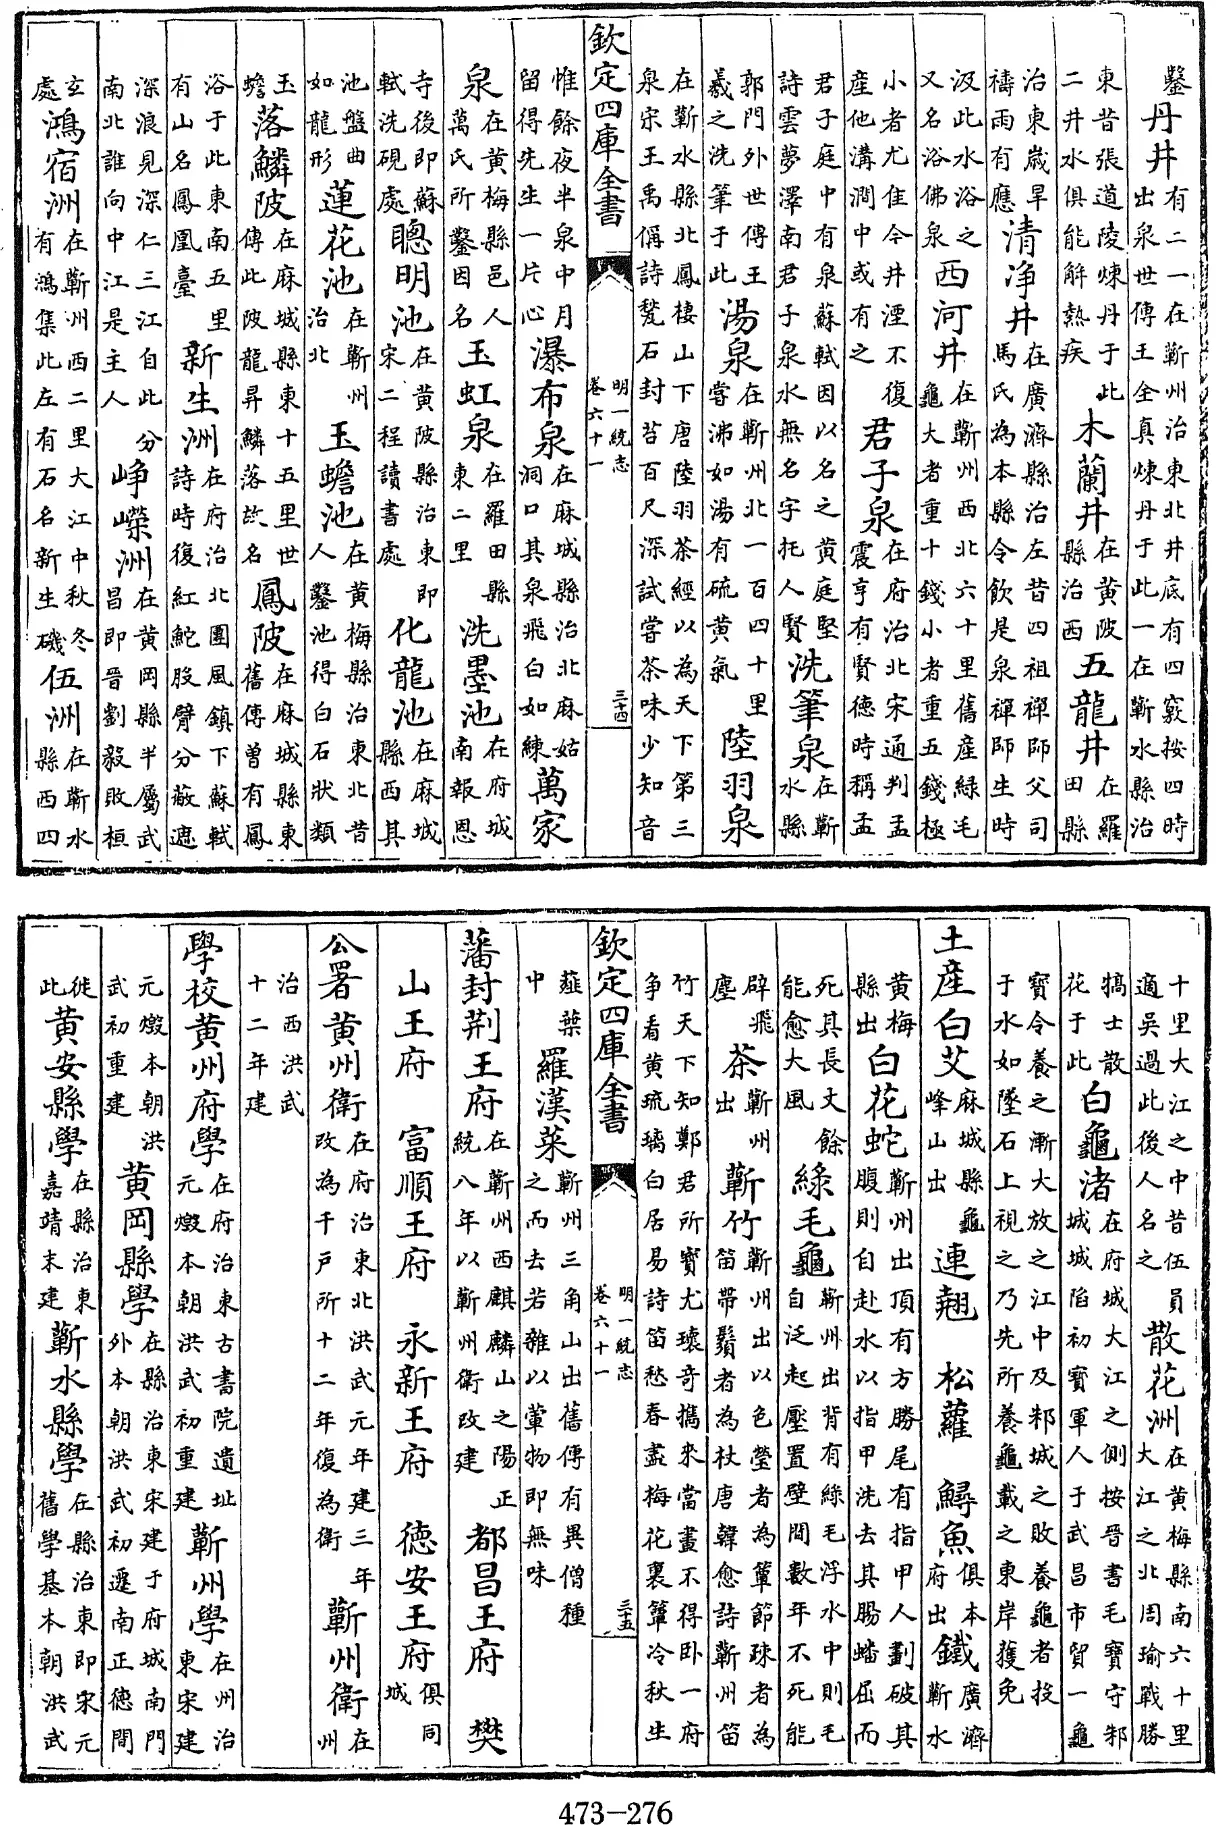 鑿丹井有二一在蘄州治東北井底有四竅按四時出泉世傳王全真煉丹于此一在蘄水縣治
東昔張道陵煉丹于此二井水俱能解熱疾木蘭井在黃陂縣治西五龍井在羅田縣
治東歲旱禱雨有應清淨井在廣濟縣治左昔四祖禪師父司馬氏為本縣令飲是泉禪師生時
汲此水浴之又名浴佛泉西河井在蘄州西北六十里舊産緑毛龜大者重十錢小者重五錢極
小者尤佳今井湮不復産他溝澗中或有之君子泉在府治北宋通判孟震亨有賢徳時稱孟
君子庭中有泉蘇軾因以名之黃庭堅詩雲夢澤南君子泉水無名字托人賢洗筆泉在蘄水縣
郭門外世傳王羲之洗筆于此湯泉在蘄州北一百四十里嘗沸如湯有硫黃氣陸羽泉
在蘄水縣北鳳棲山下唐陸羽茶經以為天下第三泉宋王禹偁詩甃石封苔百尺深試嘗茶味少知音
欽定四庫全書 明一統志卷六十一 三十四
惟餘夜半泉中月留得先生一片心瀑布泉在麻城縣治北麻姑洞口其泉飛白如練萬家
泉在黃梅縣邑人萬氏所鑿因名玉虹泉在羅田縣東二里洗墨池在府城南報恩
寺後即蘇軾洗硯處聰明池在黃陂縣治東即宋二程讀書處化龍池在麻城縣西其
池盤曲如龍形蓮花池在蘄州治北玉蟾池在黃梅縣治東北昔人鑿池得白石狀類
玉蟾落鱗陂在麻城縣東十五里世傳此陂龍昇鱗落故名鳳陂在麻城縣東舊傳曾有鳳
浴于此東南五里有山名鳳凰臺新生洲在府治北團風鎮下蘇軾詩時復紅鮀股臂分蔽遮
深浪見深仁三江自此分南北誰向中江是主人峥嶸洲在黃岡縣半屬武昌即晉劉毅敗桓
玄處鴻宿洲在蘄州西二里大江中秋冬有鴻集此左有石名新生磯伍洲在蘄水縣西四
十里大江之中昔伍員適吳過此後人名之散花洲在黃梅縣南六十里大江之北周瑜戰勝
犒士散花于此白龜渚在府城大江之側按晉書毛寶守邾城城陷初寶軍人于武昌市買一龜
寶令養之漸大放之江中及邾城之敗養龜者投于水如墜石上視之乃先所養龜載之東岸獲免
土産白艾麻城縣龜峰山出連翹 松蘿 鱘魚俱本府出鐵廣濟蘄水
黃梅縣出白花蛇蘄州出頂有方勝尾有指甲人劃破其腹則自赴水以指甲洗去其腸蟠屈而
死其長丈餘能愈大風緑毛龜蘄州出背有緑毛浮水中則毛自泛起壓置壁間數年不死能
辟飛塵茶蘄州出蘄竹蘄州出以色瑩者為簟節疎者為笛帶鬚者為杖唐韓愈詩蘄州笛
竹天下知鄭君所寶尤瓌奇攜來當晝不得卧一府争看黃琉璃白居易詩笛愁春盡梅花裏簟冷秋生
欽定四庫全書 明一統志卷六十一 三十五
薤葉中羅漢菜蘄州三角山出舊傳有異僧種之而去若雜以葷物即無味
藩封荆王府在蘄州西麒麟山之陽正統八年以蘄州衛改建都昌王府 樊
山王府 富順王府 永新王府 徳安王府俱同城
公署黃州衛在府治東北洪武元年建三年改為千戸所十二年復為衛蘄州衛在州
治西洪武十二年建
學校黃州府學在府治東古書院遺址元燬本朝洪武初重建蘄州學在州治東宋建
元燬本朝洪武初重建黃岡縣學在縣治東宋建于府城南門外本朝洪武初遷南正徳間
徙此黃安縣學在縣治東嘉靖末建蘄水縣學在縣治東即宋元舊學基本朝洪武
473-276